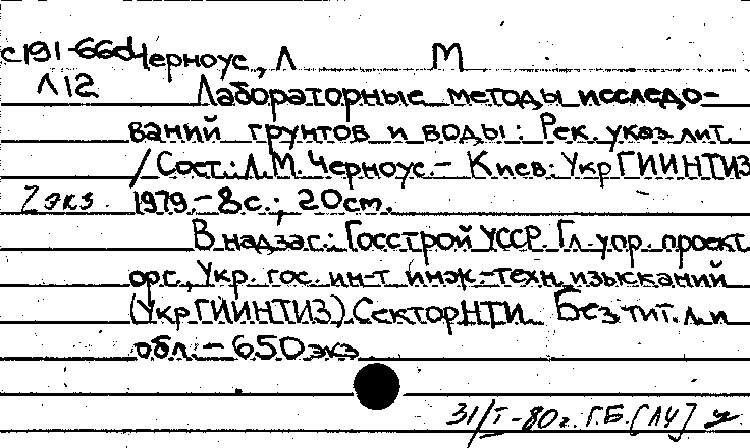 с191-66d Черноус, Л М
Л12 Лабораторные методы исследо-
ваний грунтов и воды: Рек. указ. лит.
/ Сост.: Л.М. Черноус. – Киев: УкрГИИНТИЗ
2 экз. 1979. – 8 с.; 20 см.
В надзаг.: Госстрой УССР. Гл. упр. проект.
орг., Укр. гос. ин-т инж.-техн. изысканий
(УкрГИИНТИЗ). Сектор НТИ. Без тит. л. и
обл. – 650 экз.
31/I-80г. Г.Б. [ЛЧ]